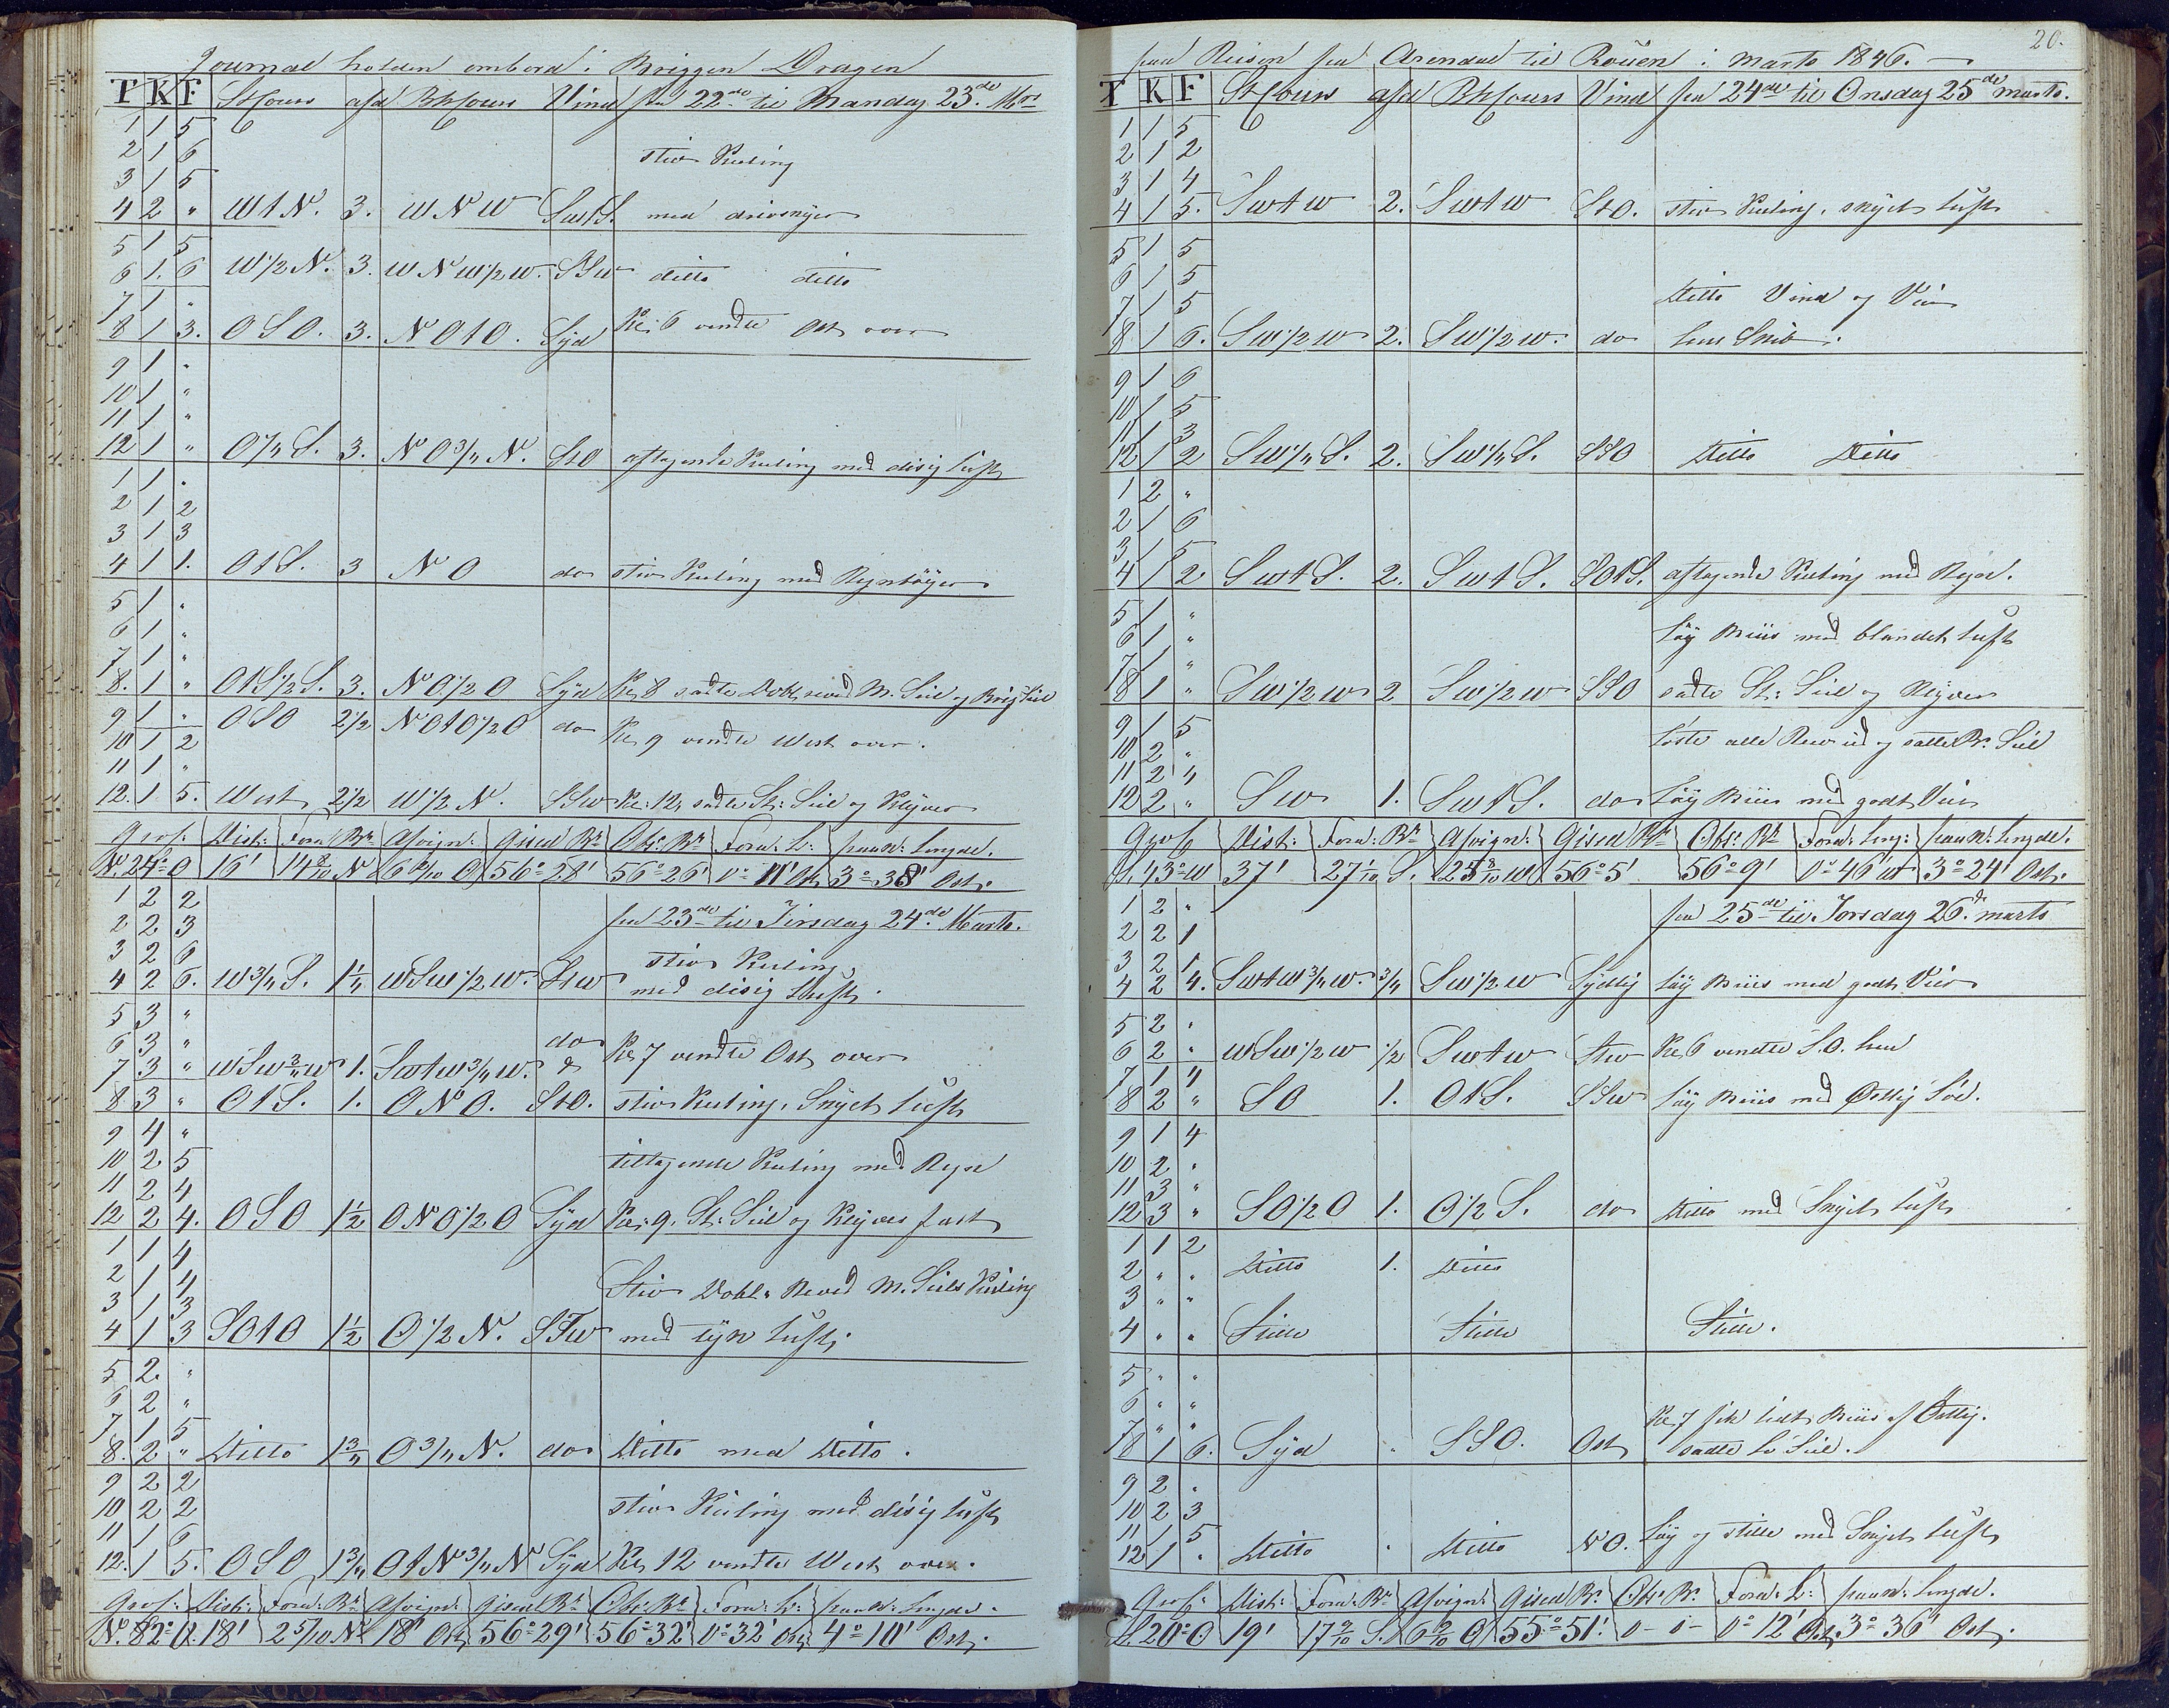 Journal holden ombord i Briggen Dragen
T K F St Cours afd Bh Cours Vind fra 22de til Mandag 23de Mts
1 1 5
2 1 6 stiv Kuling
3 1 5
4 2 " WtN. 3. WNW SwtS. med drivskyer
5 1 5
6 1. 6 W1/2N. 3. WNW1/2W. SSW ditto ditto
7 1 "
8 1 3. OSO. 3. NOtO. Syd Kl: 6 vendte Ost over
9 1 "
10 1 "
11 1 "
12 1 " O1/4S. 3. NO3/4N. StO aftagende Kuling med disig luft
1 1 "
2 1 2
3 1 3
4 1 1. OtS. 3 NO do stiv Kuling med Regnbÿger
5 1 "
6 1 "
7 1 "
8. 1 " OtS1/2S. 3. NO1/2O Syd Kl 8 satte Dobb. reved M. Seil og Brig Seil
9 1 " OSO 2 1/2 NOtO1/2O do Kl 9 vendte West over.
10 1 2
11 1 "
12. 1 5. West 2 1/2 W1/2N. SSW Kl: 12, satte St: Seil og Klÿver
Gros: Dist: Forn: Br: Afvign: Gised Br: Obs: Br: Forn: L: paaw: Lengde.
N. 24° O 16' 14 8/10 N 6 6/10 O 56° 28' 56° 26' 0° 11' Ost 3° 38' Ost.
1 2 2
2 2 3 fra 23de til Tirsdag 24de Marts.
3 2 6 stiv Kuling
4 2 6. W3/4S. 1 1/4 WSW1/2W. StW med disig Luft.
5 3 "
6 3 " do
7 3 " WSW3/4W 1. SwtW3/4W. Kl 7 vendte Ost over
8 3 " OtS. 1. ONO. StO. stiv Kuling, Skÿet luft
9 4 "
10 2 5 tiltagende Kuling med Regn
11 2 4
12 2 4. OSO 1 1/2 ONO1/2O Syd Kl: 9. St: Seil og Klÿver fast
1 1 4
2 1 4 Stiv Dobl. Reved M. Seils Kuling
3 1 3
4 1 3 SOtO 1 1/2 O1/2N. SSW med tÿk luft.
5 2. "
6 2 "
7 1 5
8. 2 " Ditto 1 3/4 O3/4N. do Ditto med Ditto.
9 2 2
10 2 2 stiv Kuling med disig luft
11 1 6
12. 1 5. OSO 1 3/4 OtN3/4N Syd Kl 12 vendte West over.
Gros: Dist: Forn: Br: Afvign: Gised Br: Obs: Br: Forn: L: paaw: Lengde.
N. 82° O. 18' 2 5/10 N 18' Ost 56° 29' 56° 32' 0° 32' Ost 4° 10' Ost.
20.
paa Reisen fra Arendal til Roüen i Marts 1846.
T K F St Cours afd Bh Cours Vind fra 24de til Onsdag 25de marts.
1 1 5
2 1 2
3 1 4
4 1 5. SwtW 2. SwtW StO. stiv Kuling, skÿet luft
5 1 5
6 1 5
7 1 5 Ditto Vind og Veir
8 1 6. SW1/2W 2. SW1/2W. do lens Skib.
9 1 6
10 1 5
11 1 3
12 1 2 SW1/4S. 2. SW1/4S. SSO Ditto Ditto
1 2 "
2 1 6
3 1 5
4 1 2 SwtS. 2. SwtS. SOtS. aftagende Kuling med Regn.
5 1 "
6 1 " løÿ Briis med blandet luft
7 1 "
8 1 " SW1/2W 2 SW1/2W SSO satte St: Seil og Klÿver
9 1 5
10 2 " løste alle Rev ud og satte Br: Seil
11 2 4
12 2 " SW 1. SwtS. do løÿ Briis med godt Veir
Gros Dist: Forn: Br Afvign: Gised Br Obs: Br Forn: Leng: paaw: Lengde.
S. 43° W 37' 27 1/10 S. 25 8/10 W 56° 5' 56° 9' 0° 46' W 3° 24' Ost.
1 2 " fra 25de til Torsdag 26d. marts
2 2 1
3 2 1
4 2 4. SwtW3/4W. 3/4 SW1/2W Sydlig løÿ Briis med godt Veir
5 2 "
6 2 " WSW1/2W 1/2 SwtW StW Kl 6 vendte S.O. hen
7 1 4
8 2 " SO 1. OtS. SSW løÿ Briis med Østlig Søe.
9 1 4
10 2 "
11 3 "
12 3 " SO1/2O 1. O1/2S. do Ditto med Skÿet luft
1 1 2
2 " " Ditto 1. Ditto
3 " "
4 " " Stille Stille Stille.
5 " "
6 " "
7 " " Kl 7 fik lidt Briis af Østlig.
8 1 6. Syd " SSO. Ost satte Seil.
9 2 "
10 2 3
11 1 5 løÿ og stille med Skÿet luft
12 1 " Ditto " Ditto NO.
Gros: Dist: Forn: Br: Afvign: Gised Br: Obs: Br: Forn: L: paaw: Lengde.
S. 20° O 19' 17 9/10 S. 6 6/10 O 55° 51'. 0 - 0 - 0° 12' Ost 3° 36' Ost.